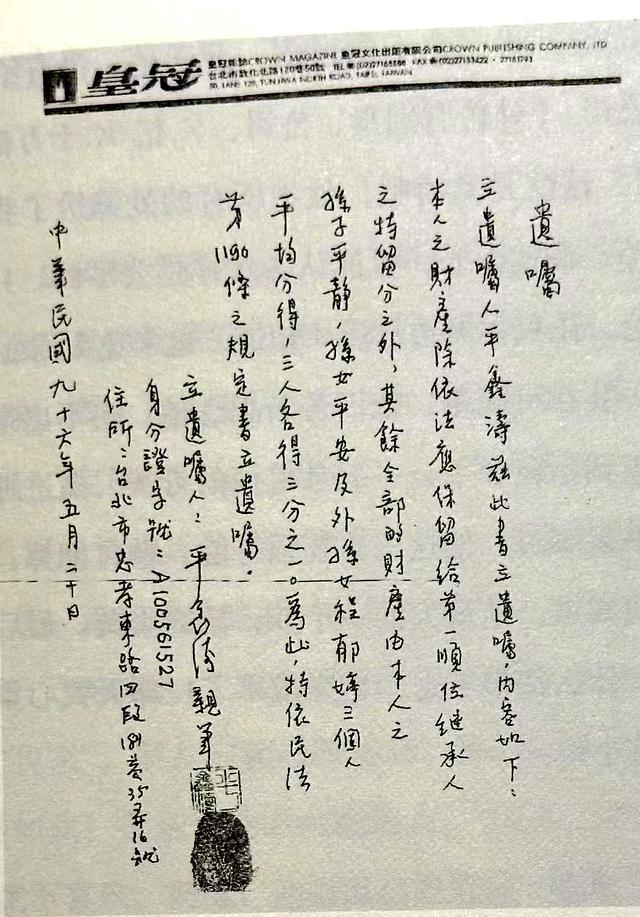 皇冠
皇冠雜誌CROWN MAGAZINE 皇冠文化出版有限公司CROWN PUBLISHING COMPANY, LTD
台北市敦化北路120巷50號 TEL:(02)27168888 FAX:(02)27133422・27161793
50, LANE 120, TUN HWA NORTH ROAD, TAIPEI, TAIWAN
遺囑
立遺囑人平鑫濤茲此書立遺囑,內容如下:
本人之財產除依法應保留給第一順位繼承人
之特留分之外,其餘全部的財產由本人之
孫子平靜,孫女平安及外孫女程郁婷三個人
平均分得,三人各得三分之一。為此,特依民法
第1190條之規定書立遺囑。
立遺囑人:平鑫濤 親筆
身分證字號:A100561527
住所:台北市忠孝東路四段181巷35弄16號
中華民國九十六年五月二十日